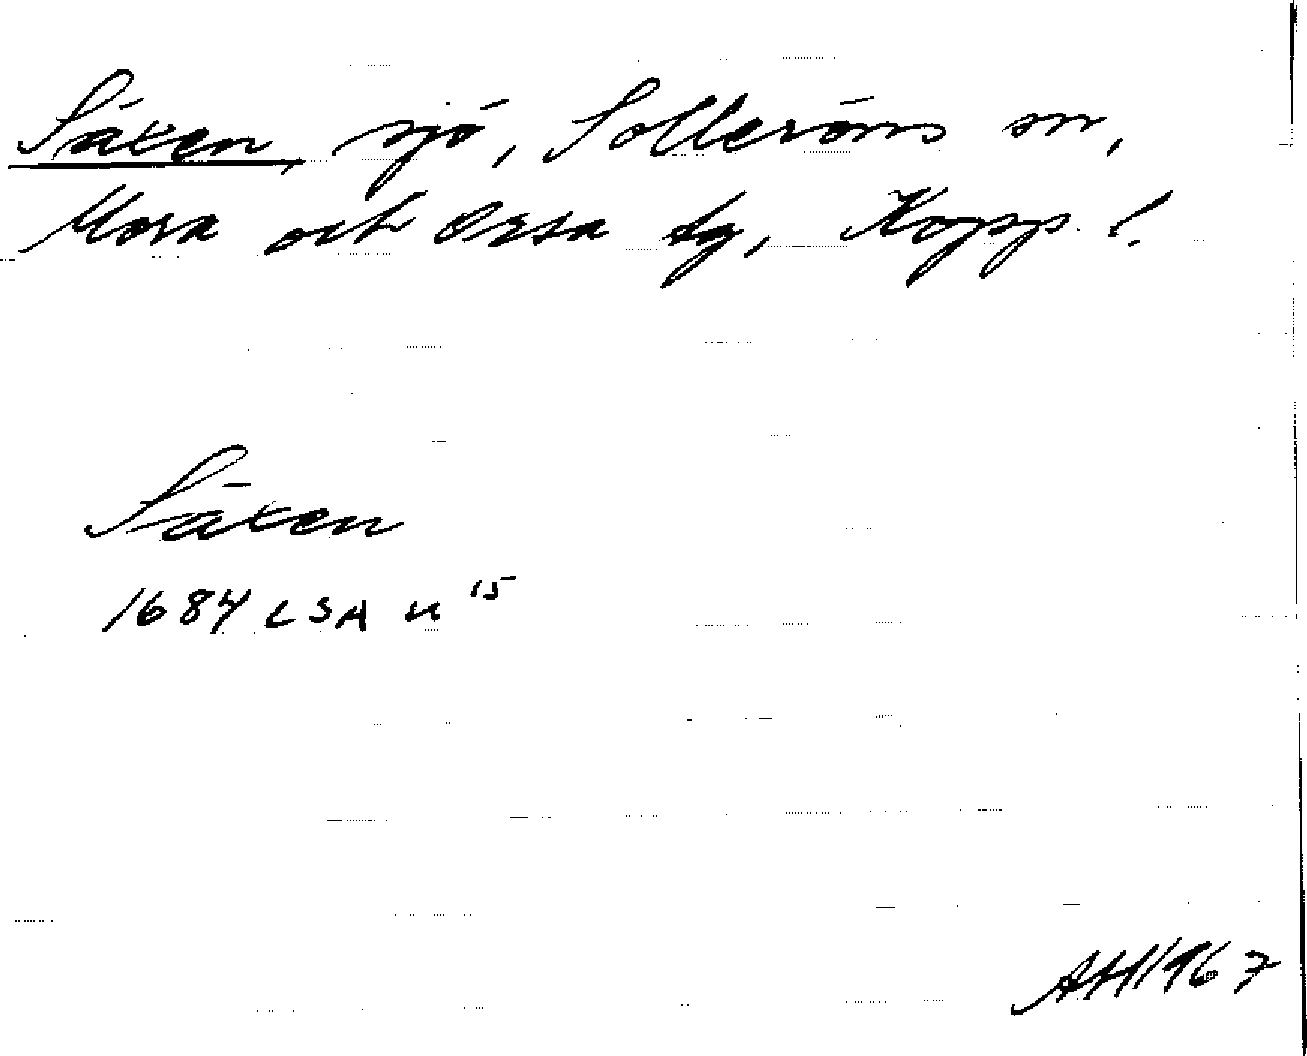 Säxen, sjö, Solleröns sn,
Mora och Orsa tg, Kopp. l.
Säxen
1684 LSA U 15
AH 1967